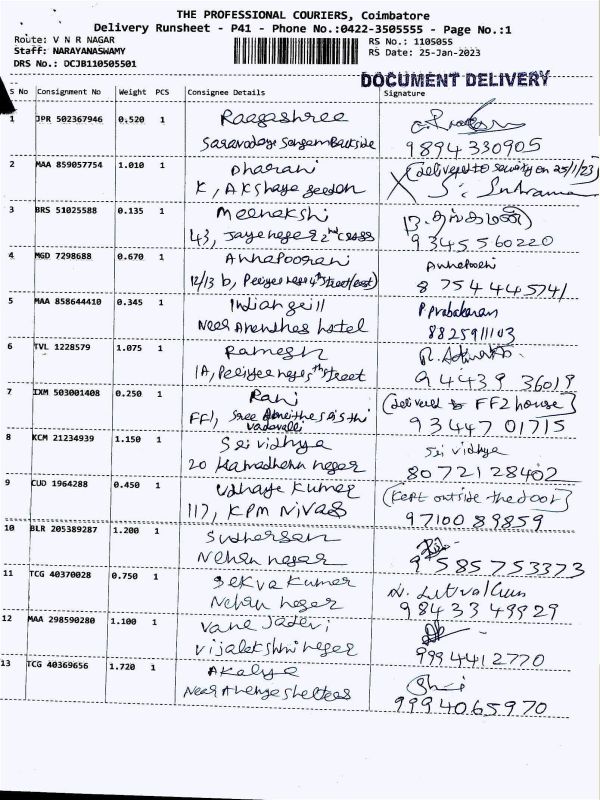 THE PROFESSIONAL COURIERS, Coimbatore
Delivery Runsheet - P41 - Phone No.:0422-3505555 - Page No.:1
Route: V N R NAGAR
RS No.: 1105055
Staff: NARAYANASWAMY
RS Date: 25-Jan-2023
DRS No.: DCJB110505501
DOCUMENT DELIVERY
S No Consignment No Weight PCS Consignee Details Signature
1 JPR 502367946 0.520 1 Raagashree
Saravodaya Sangam Backside 9894330905
2 MAA 859057754 1.010 1 Dharani (delivered to security on 25/1/23)
K, Akshaya
3 BRS 51025588 0.135 1 Meenakshi
43, Jayanagar 2nd cross 9345560220
4 MGD 7298688 0.670 1 Annapoorani
12/13 b, 4th street (east) 8754444574
5 MAA 858644410 0.345 1 P Prabakaran
Near hotel 8825911103
6 TVL 1228579 1.075 1 Ramesh
1A, street 94439 36019
7 IXM 503001408 0.250 1 Rani (delivered to FF2 house)
FF1, Sree 93447 01715
Vadavalli
8 KCM 21234939 1.150 1 Sri vidhya Sri vidhya
20 Kamadhenu nagar 8072128402
9 CUD 1964288 0.450 1 Udhaya Kumar (Kept outside the door)
117, KPM Nivas 9710089859
10 BLR 205389287 1.200 1 Sudharsan
Nehru nagar 9585753373
11 TCG 40370028 0.750 1 Selva Kumar
Nehru nagar 9843349929
12 MAA 298590280 1.100 1
Vijalakshhi nagar 9994412770
13 TCG 40369656 1.720 1 Akalya
Near 9994065970